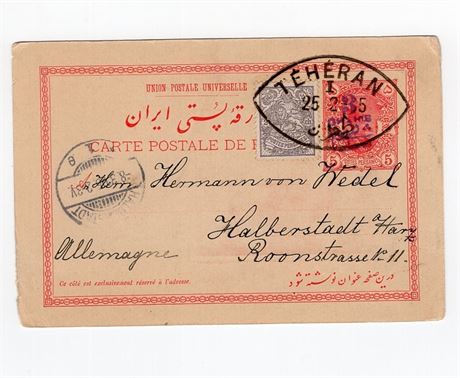 UNION POSTALE UNIVERSELLE
TÉHÉRAN
I
25 2 05
رقهٔ پستی ایران
CARTE POSTALE DE
5
5
Herrn Hermann von Wedel
Halberstadt a Harz
Roonstrasse № 11.
Allemagne
Ce côté est exclusivement réservé à l'adresse.
درین صفحه عنوان نوشته شود